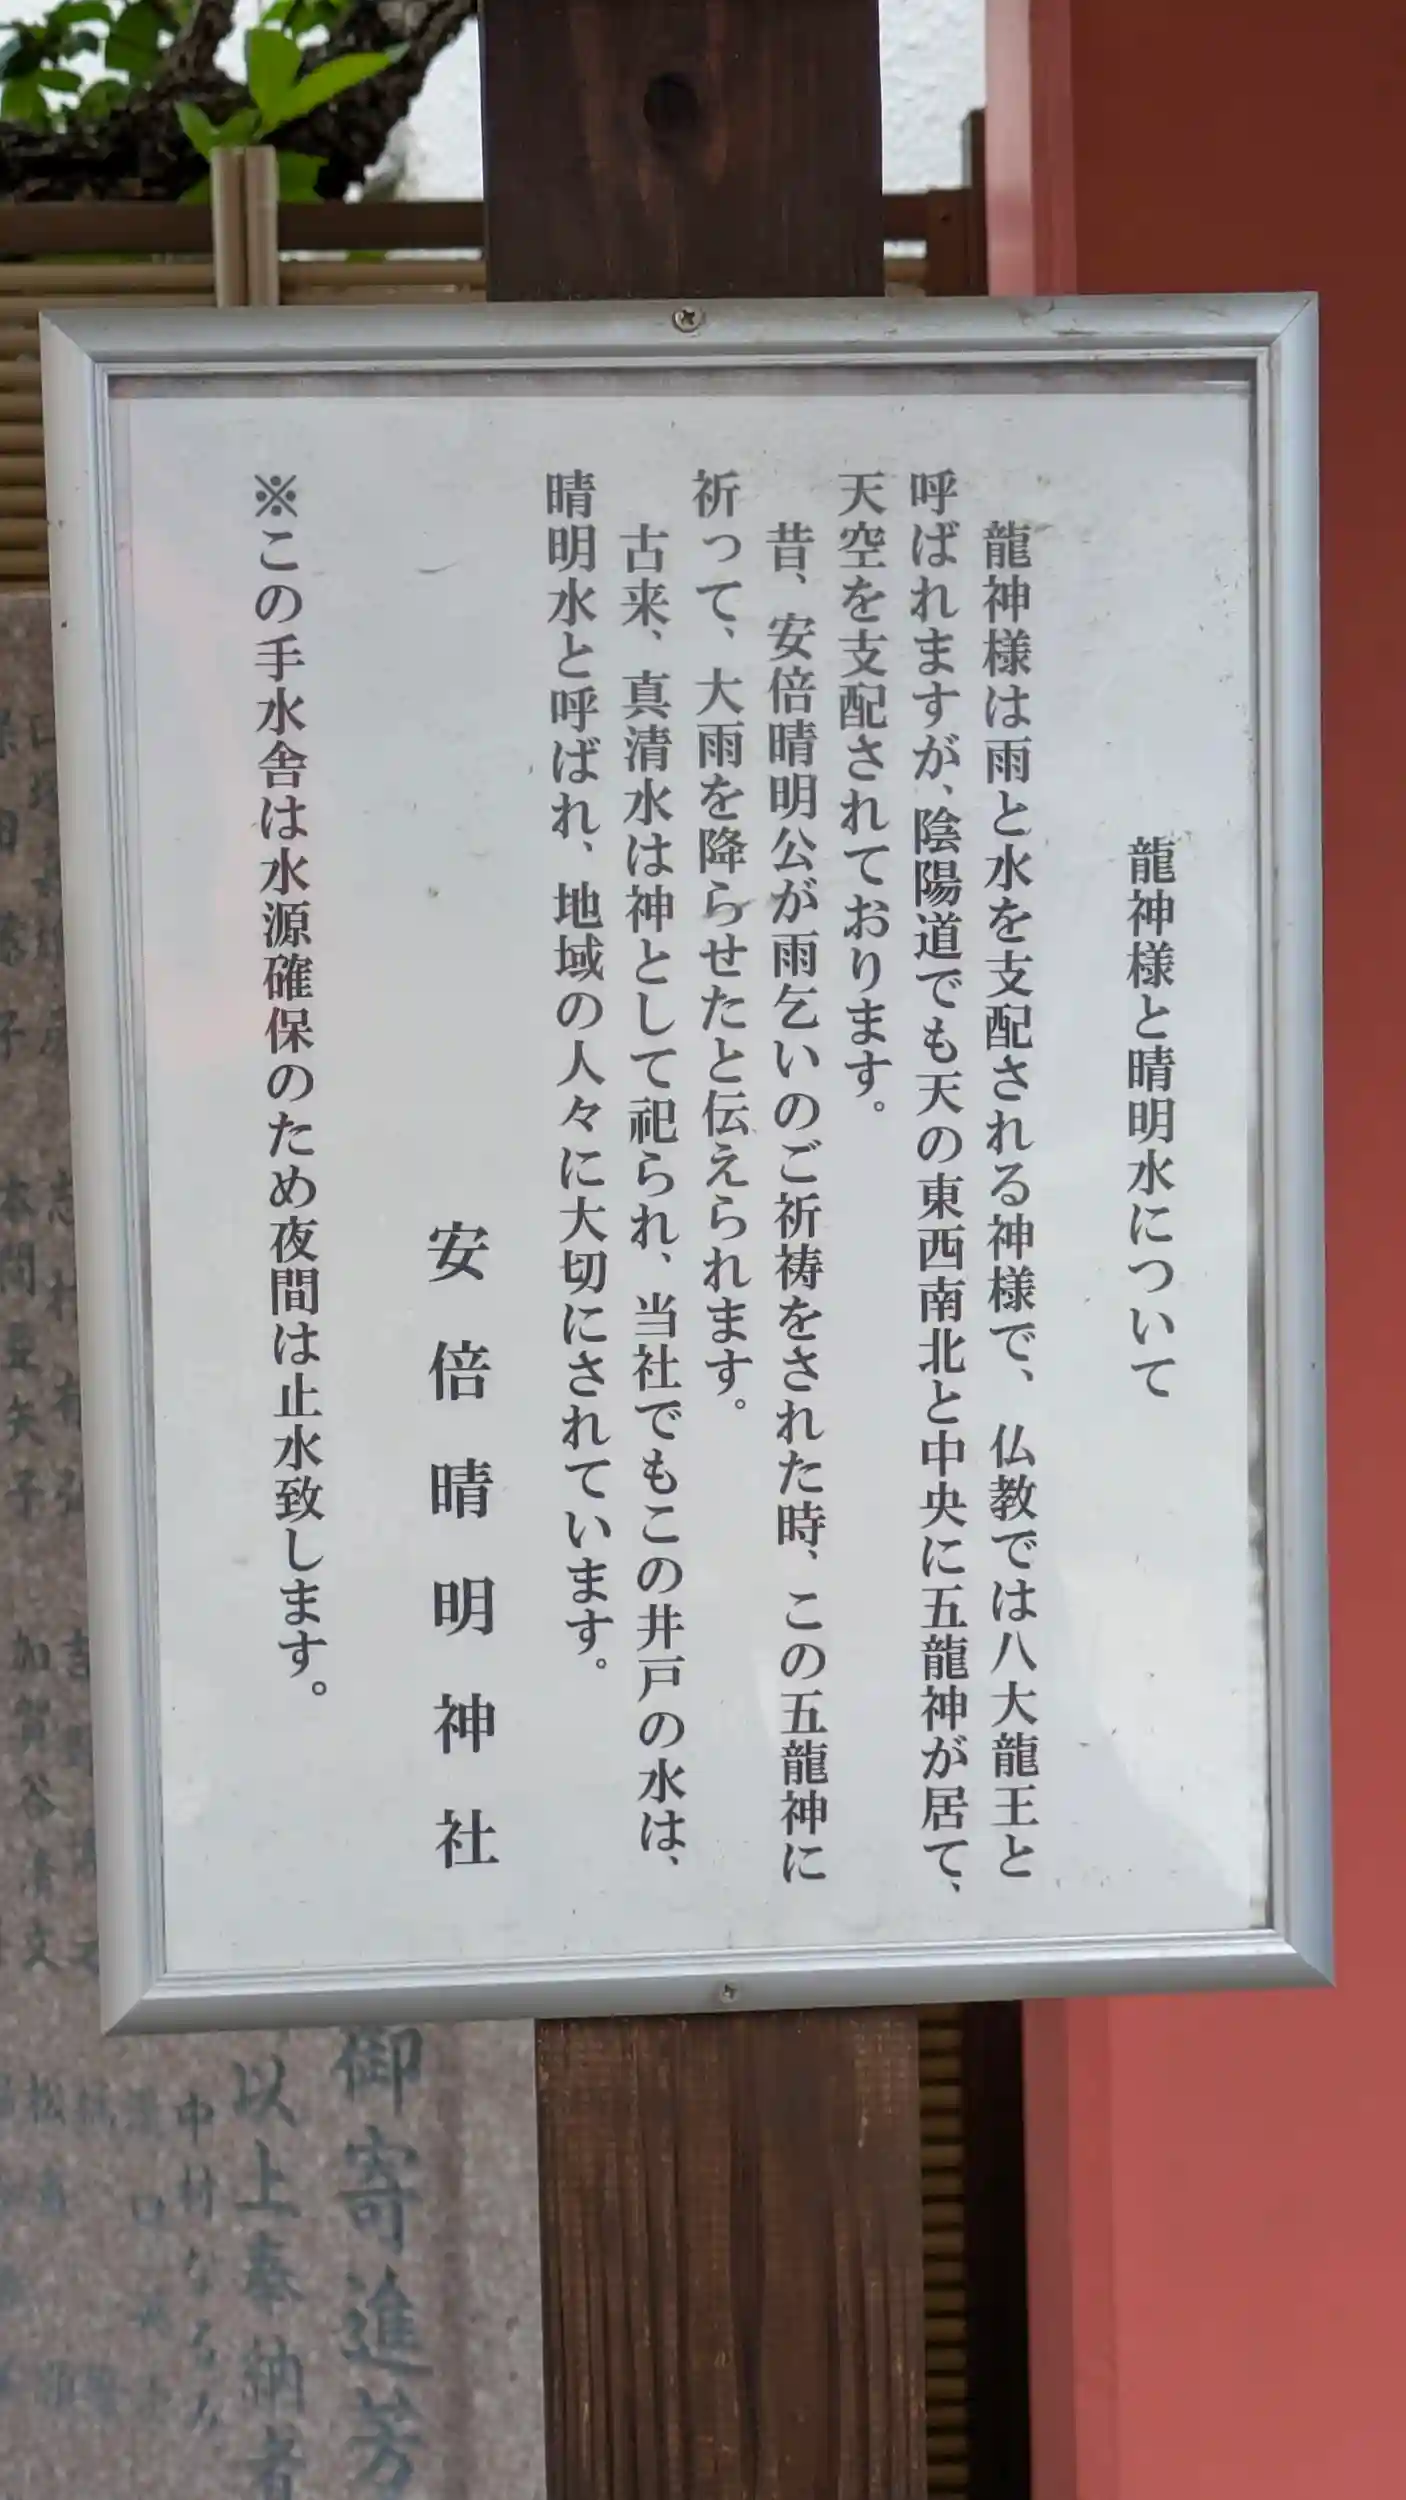 龍神様と晴明水について
龍神様は雨と水を支配される神様で、仏教では八大龍王と
呼ばれますが、陰陽道でも天の東西南北と中央に五龍神が居て、
天空を支配されております。
昔、安倍晴明公が雨乞いのご祈祷をされた時、この五龍神に
祈って、大雨を降らせたと伝えられます。
古来、真清水は神として祀られ、当社でもこの井戸の水は、
晴明水と呼ばれ、地域の人々に大切にされています。
安倍晴明神社
※この手水舎は水源確保のため夜間は止水致します。
御寄進芳
以上奉納者